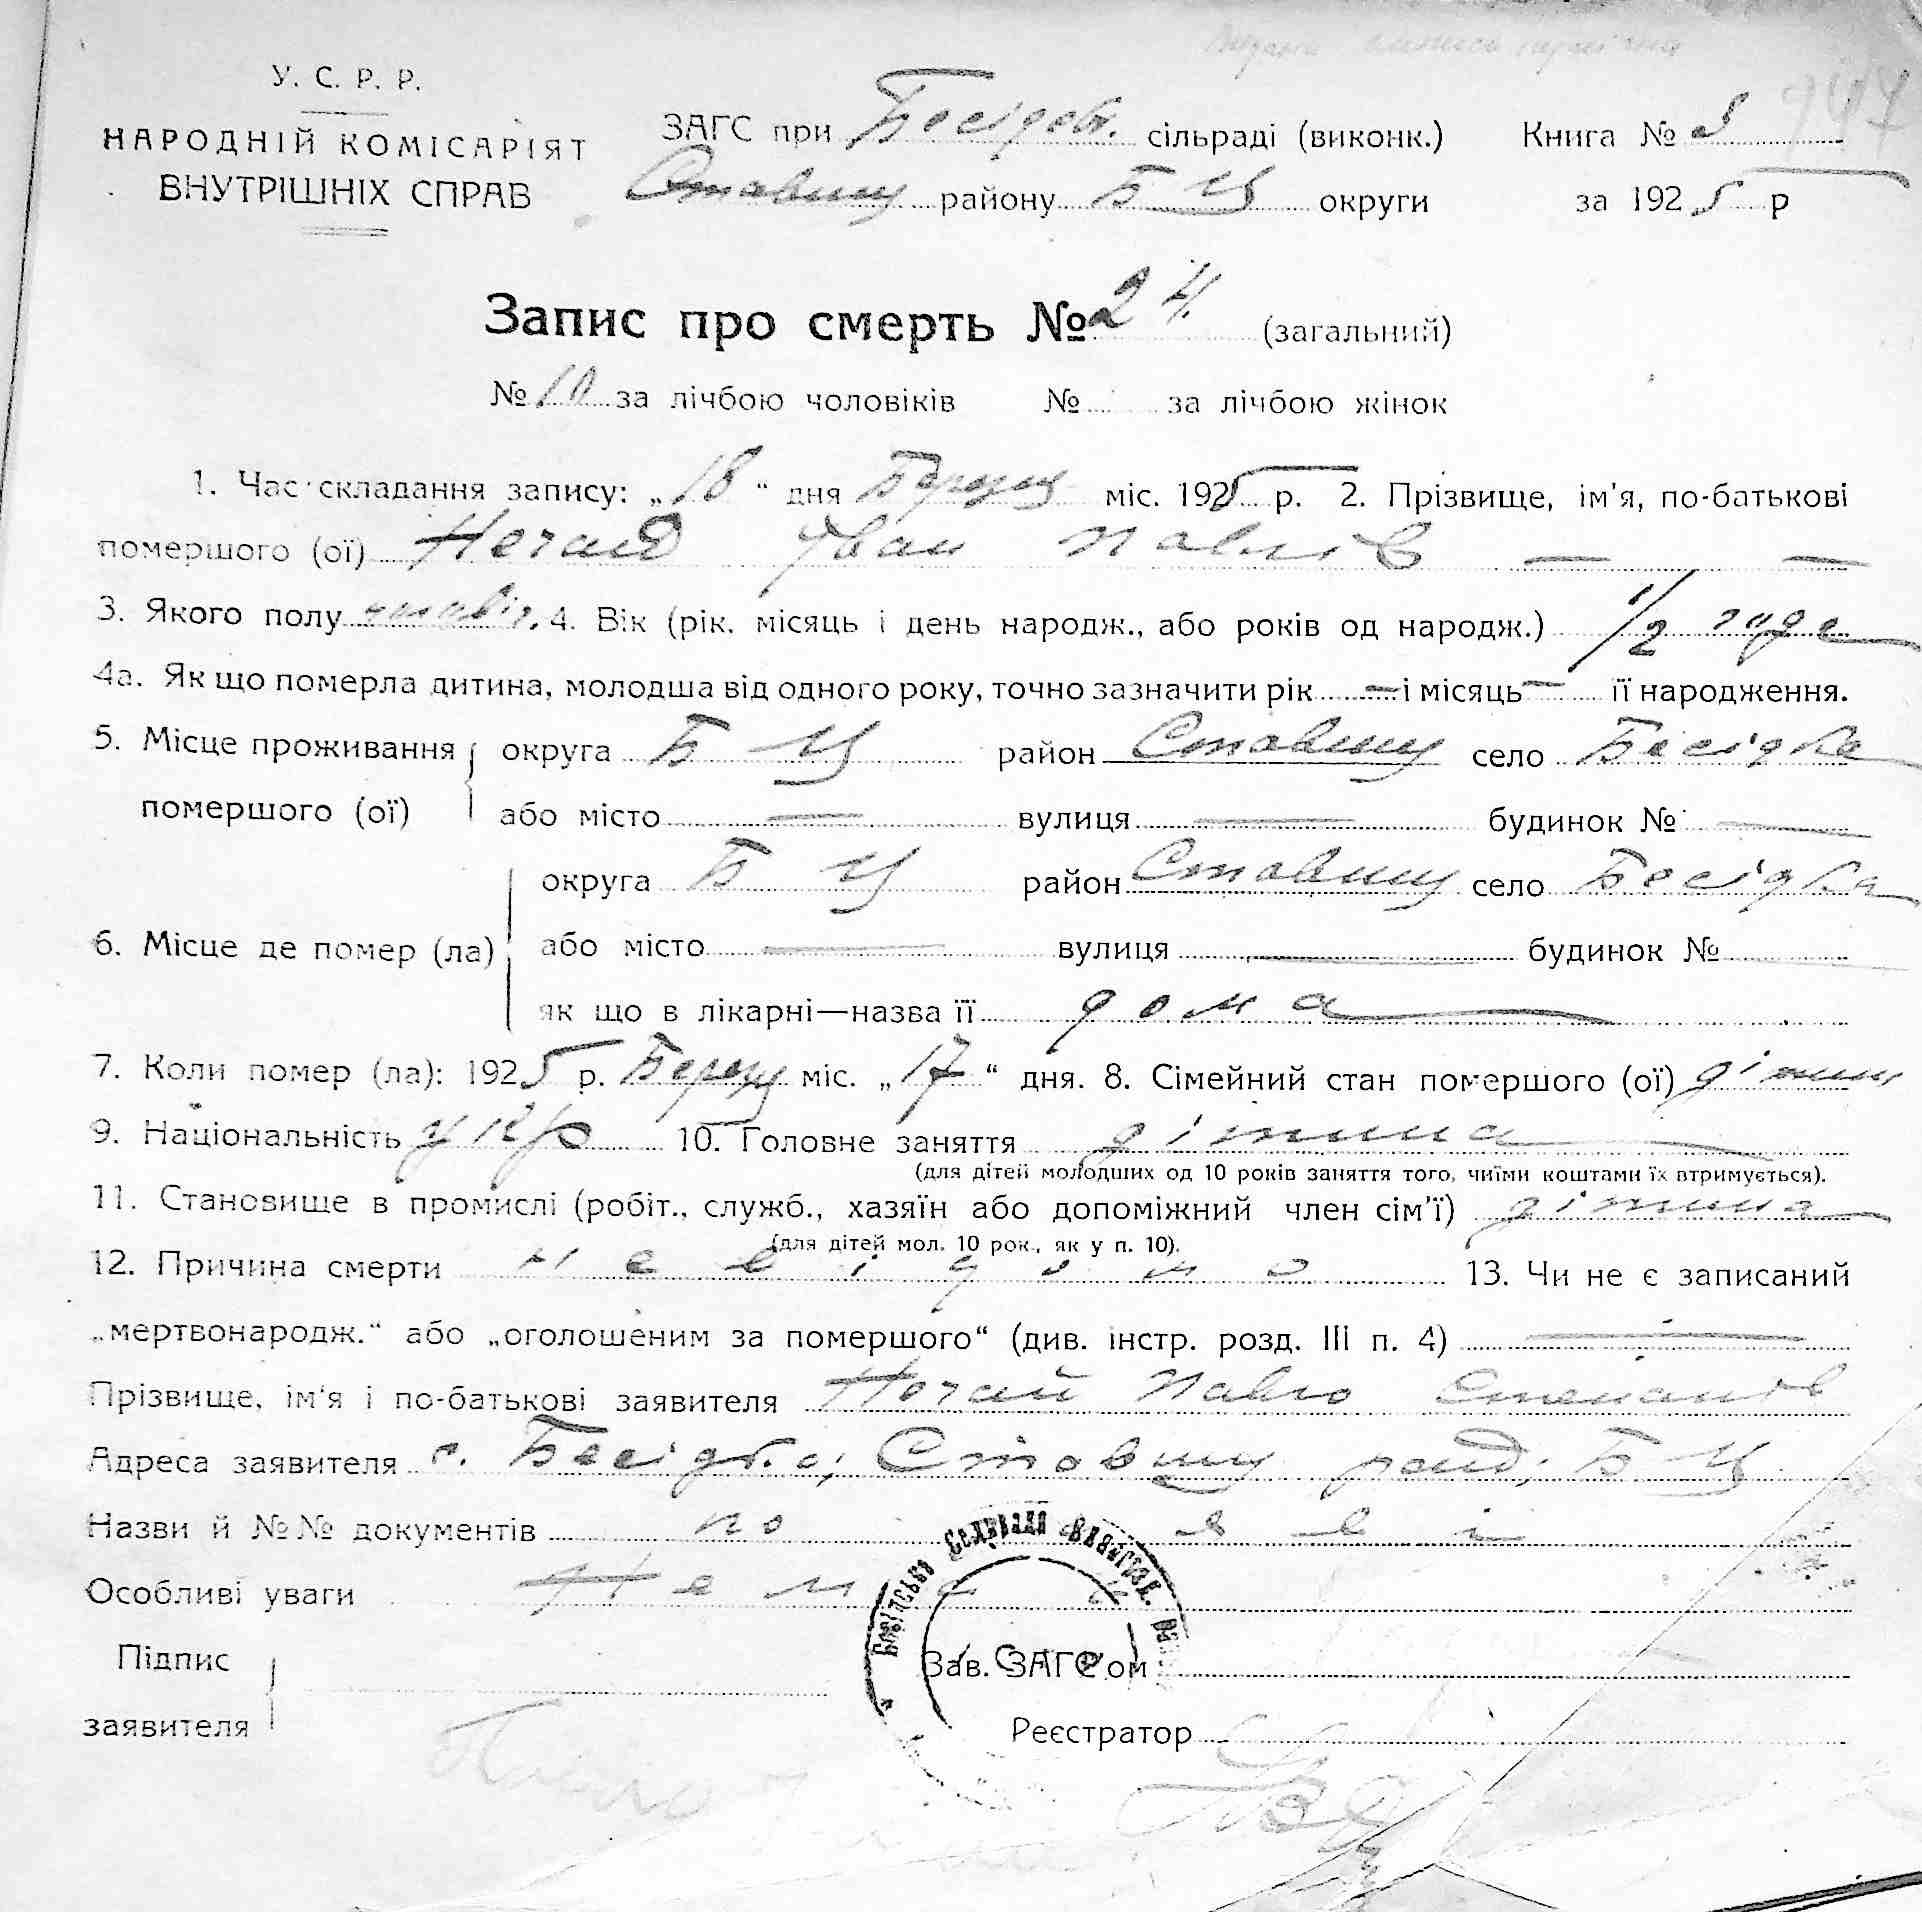 У. С. Р. Р.
НАРОДНІЙ КОМІСАРІЯТ
ВНУТРІШНІХ СПРАВ
ЗАГС при Бесідов. сільраді (виконк.) Книга № 3
Ставищ району Б Ц округи за 1925 р
Запис про смерть № 24 (загальний)
№ 10 за лічбою чоловіків № за лічбою жінок
1. Час складання запису: „18“ дня Березня міс. 1925 р. 2. Прізвище, ім'я, по-батькові
помершого (ої) Нечай Іван Павлів — —
3. Якого полу чоловіч. 4. Вік (рік, місяць і день народж., або років од народж.) 1/2 года
4а. Як що померла дитина, молодша від одного року, точно зазначити рік — і місяць — її народження.
5. Місце проживання помершого (ої)
округа Б Ц район Ставищ село Бесідка
або місто — вулиця — будинок № —
6. Місце де помер (ла)
округа Б Ц район Ставищ село Бесідка
або місто — вулиця — будинок №
як що в лікарні—назва її дома
7. Коли помер (ла): 1925 р. Березня міс. „17“ дня. 8. Сімейний стан помершого (ої) дітина
9. Національність укр 10. Головне заняття дітина
(для дітей молодших од 10 років заняття того, чиїми коштами їх втримується).
11. Становище в промислі (робіт., служб., хазяїн або допоміжний член сім'ї) дітина
(для дітей мол. 10 рок., як у п. 10).
12. Причина смерти невідомо 13. Чи не є записаний
„мертвонародж.“ або „оголошеним за помершого“ (див. інстр. розд. III п. 4) —
Прізвище, ім'я і по-батькові заявителя Нечай Павло Степанов
Адреса заявителя с. Бесідка, Ставищ райд, Б Ц
Назви й №№ документів по
Особливі уваги Нема
Підпис заявителя
Зав. ЗАГС'ом
Реєстратор